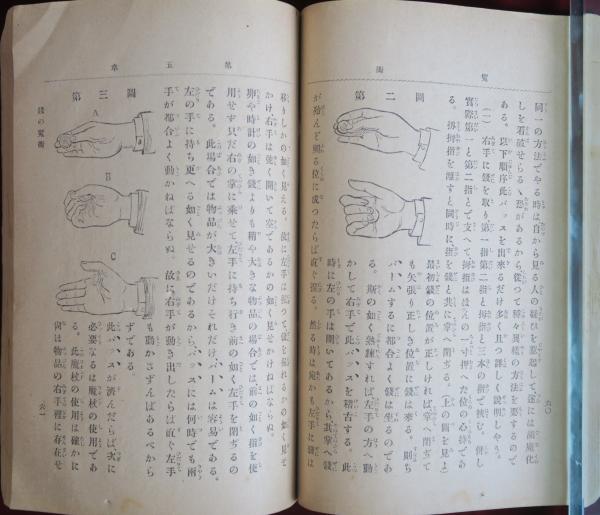 奇術
六〇
同一の方法でやる時は、自から見る人の疑ひを惹起して遂には薩魔化
しを看破せらるゝ恐があるから、從つて種々異樣の方法を要するので
ある。以下順序此パッスを出來るだけ多く且つ詳しく說明しやう。
(一) 右手に錢を取り第一指第二指と拇指と三本の指で挾む。倂し
實際第一と第二指とで支へて拇指はほんの一寸押へた位の心持であ
る。拇指を離すと同時に指を錢と共に掌へ閉ぢる。(上の圖を見よ)
圖二第
最初錢の位置が正しければ掌へ閉ぢて
も矢張り正しき位置に錢は來る。則ち
パームするに都合よく錢は坐るのであ
る。斯の如く熟練すれば左手の方へ動
かして右手で此パッスを稽古する。此
時に左の手は開いてあるから其掌へ錢
が殆んど觸る位に成つたらば直ぐ握る。然る時は宛かも左手に錢は
第五章
錢の奇術
六一
移りしかの如く見える。故に左手は握つて錢を握れるかの如く見せ
かけ右手は強く開いて空であるかの如く見せかけねばならぬ。
卵や時計の如き錢よりも稍や大きな物品の場合では、前の如く指を使
用せず只だ右の掌に乘せて左手に持ち行き前の如く左手を閉ぢるの
である。此場合では物品が大きいだけそれだけパームは容易である。
左の手に持ち更へる如く見せるのであるからパッスには何時でも兩
手が都合よく動かねばならぬ。故に右手が動き出したらば直ぐ左手
圖三第
A
B
C
も動かさずんばあるべから
ずである。
此パッスが濟んだらば次に
必要なるは魔杖の使用であ
る。此魔杖の使用は確かに
尙ほ物品の右手裡に存在せ